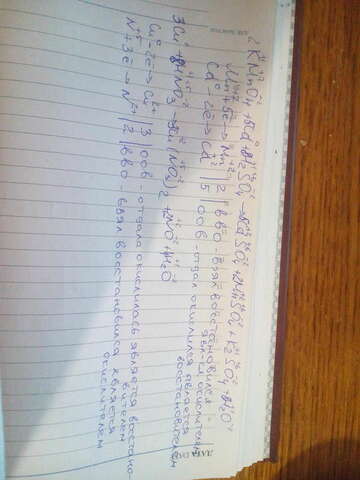 2KMnO4 + 5Cd + 8H2SO4 → 5CdSO4 + 2MnSO4 + K2SO4 + 8H2O
Mn+7 +5e → Mn+2 | 2 | ввО - взял восстановился
явл окислителем
Cd0 - 2e → Cd+2 | 5 | ООВ - отдал окислился является
восстановителем
3Cu + 8HNO3 → 3Cu(NO3)2 + 2NO + 4H2O
Cu0 - 2e → Cu2+ | 3 | ООВ - отдала окислилась является восстано-
вителем
N+5 + 3e → N2+ | 2 | ввО - взял восстановился является
окислителем